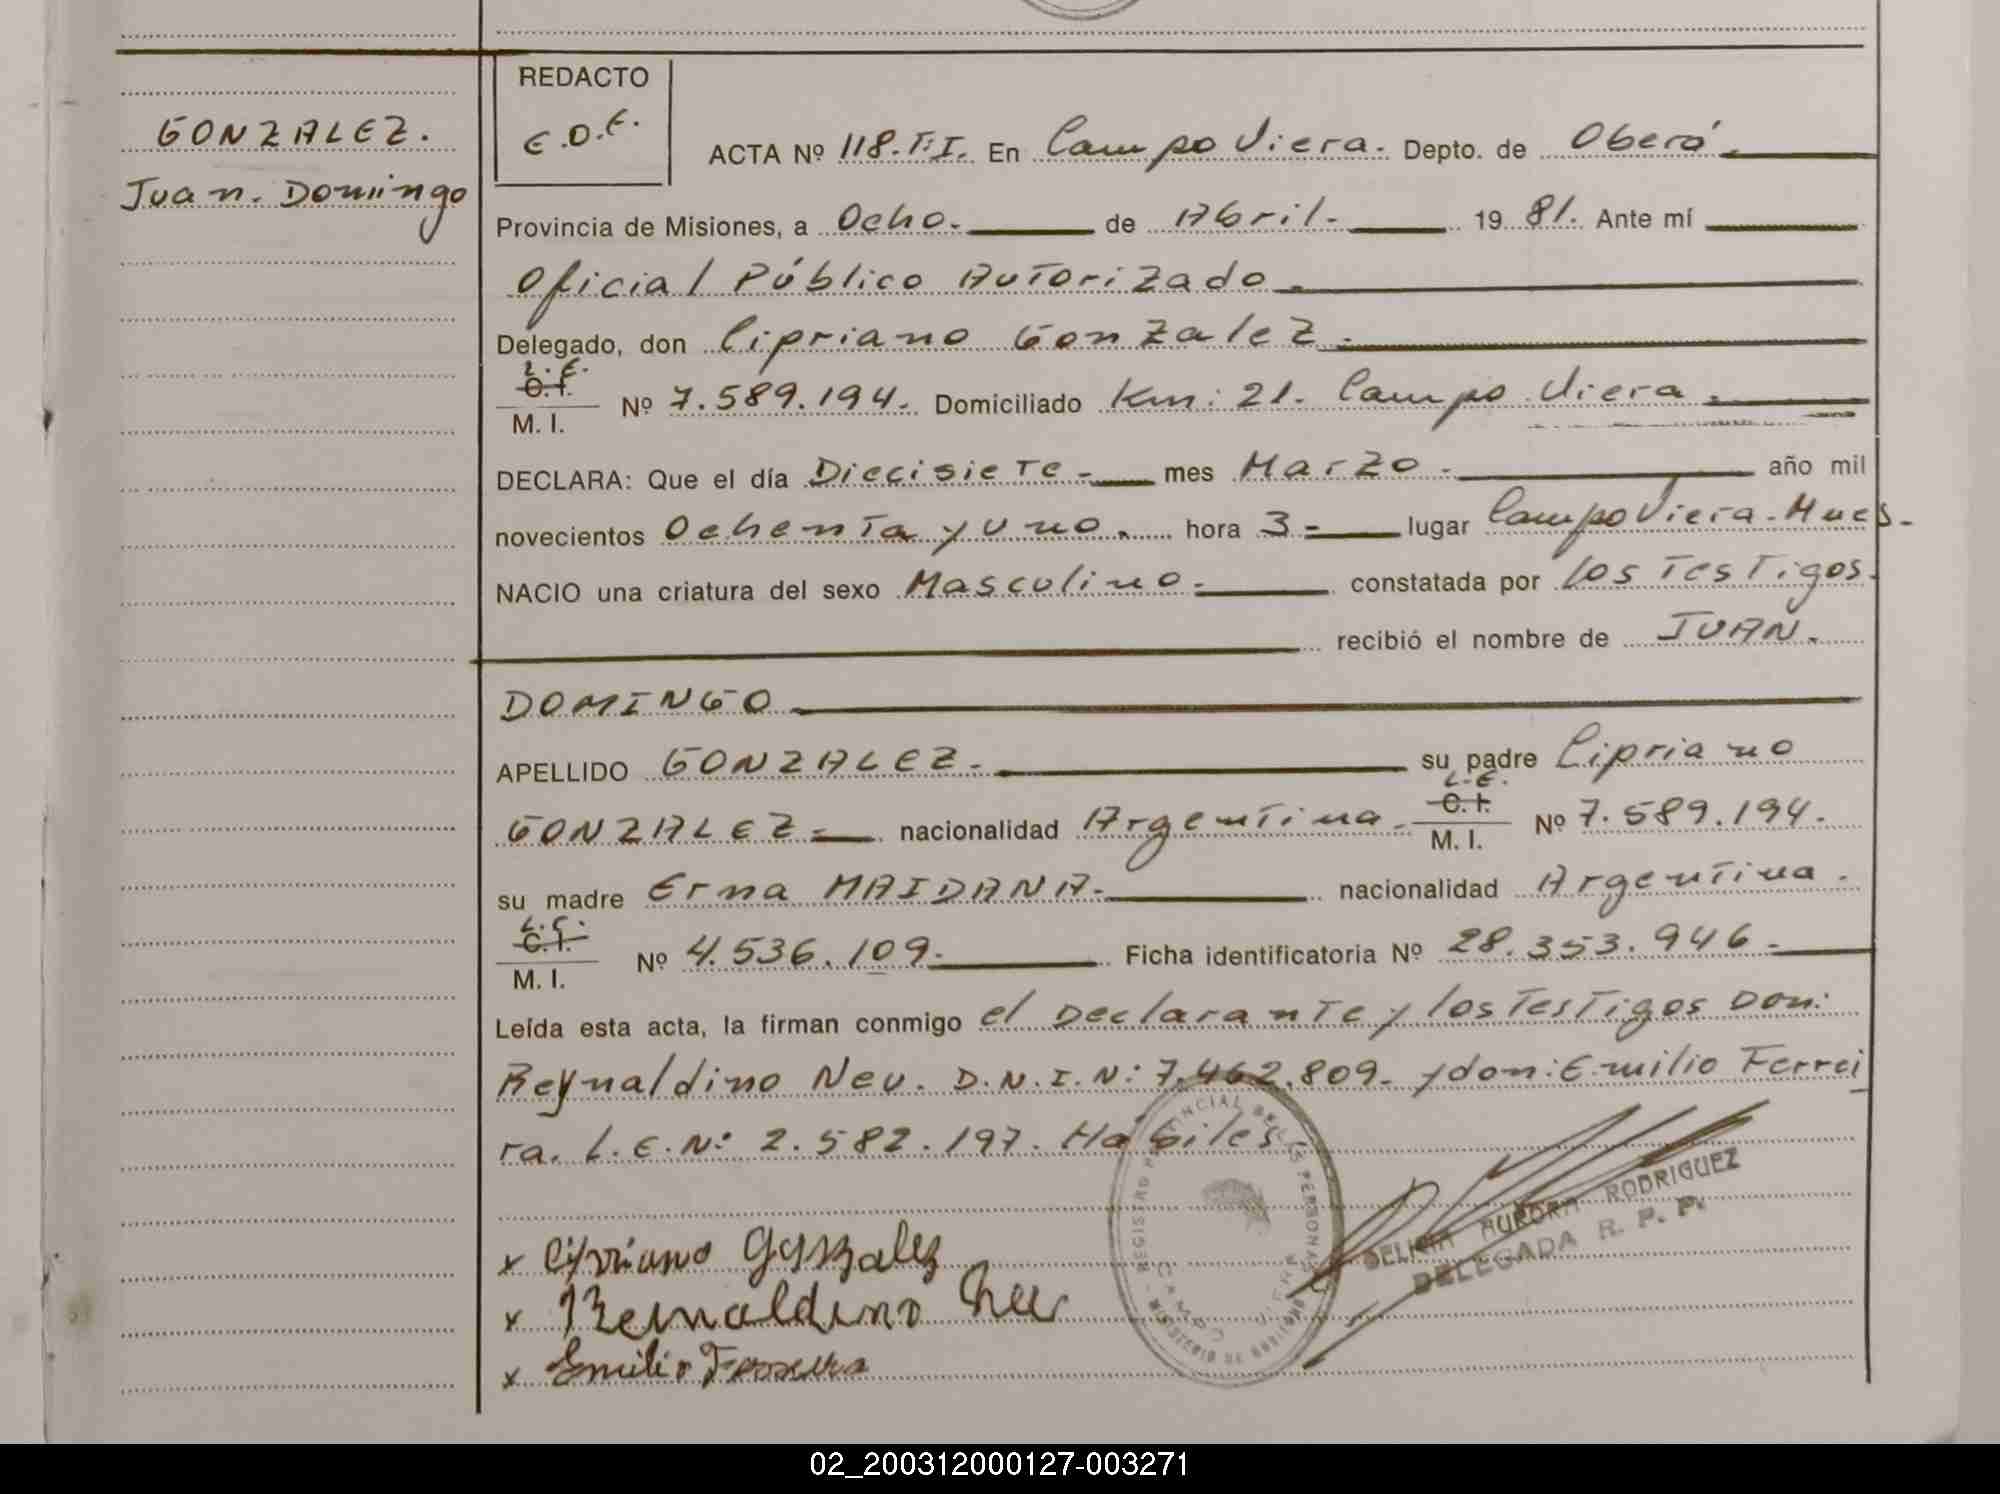 GONZALEZ.
Juan. Domingo
REDACTO
E.O.E.
ACTA Nº 118.T:I. En Campo Viera. Depto. de Oberá
Provincia de Misiones, a Ocho. de Abril. 19 81. Ante mí
Oficial Público Autorizado
Delegado, don Cipriano Gonzalez.
L.E.
C.I.
M. I.
Nº 7.589.194. Domiciliado Km: 21. Campo Viera.
DECLARA: Que el día Diecisiete mes Marzo. año mil
novecientos Ochenta y uno. hora 3 lugar Campo Viera. Mnes.
NACIO una criatura del sexo Masculino. constatada por los Testigos.
recibió el nombre de JUAN.
DOMINGO
APELLIDO GONZALEZ. su padre Cipriano
GONZALEZ nacionalidad Argentina. L.E. C.I. M. I. Nº 7.589.194.
su madre Erna MAIDANA. nacionalidad Argentina.
L.C.
C.I.
M. I.
Nº 4.536.109. Ficha identificatoria Nº 28.353.946.
Leída esta acta, la firman conmigo el Declarante y los Testigos Don:
Reynaldino Neu. D.N.I.N: 7.462.809. y don: Emilio Ferrei
ra. L.E.N: 2.582.197. Habiles
x Cipriano Gonzalez
x Reinaldino Neu
x Emilio Ferreira
REGISTRO PROVINCIAL DE LAS PERSONAS
CAMPO VIERA
DELICIA AURORA RODRIGUEZ
DELEGADA R. P. P.
02_200312000127-003271